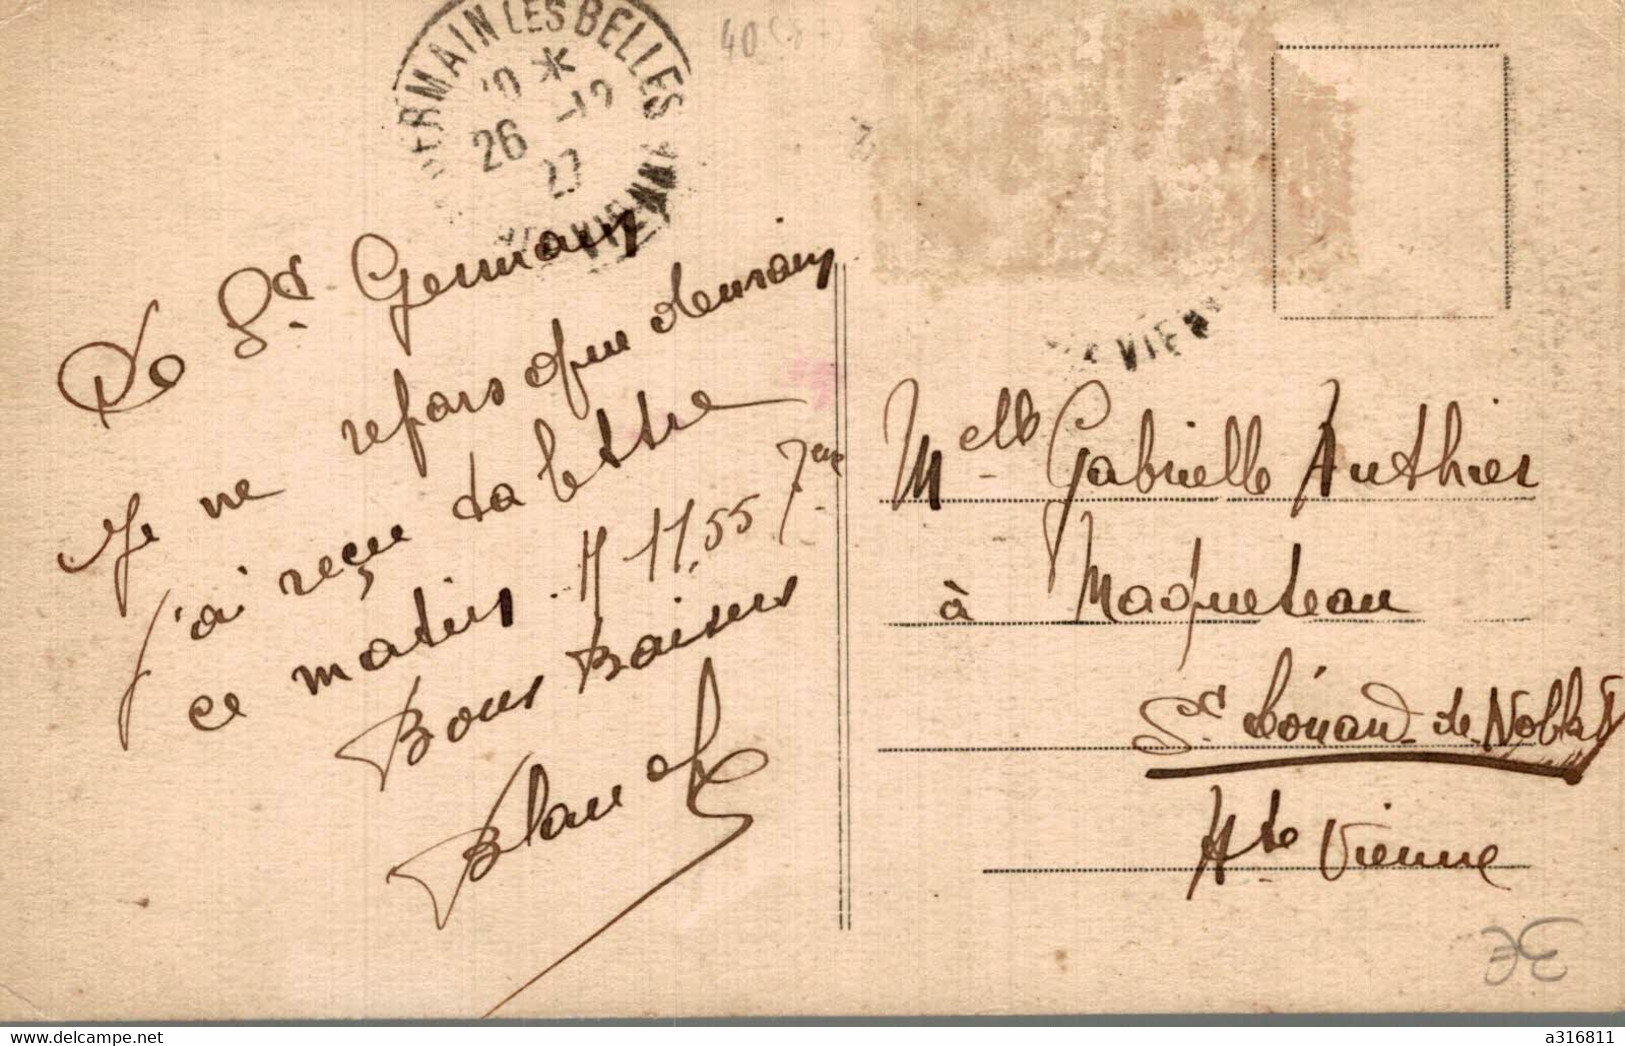 GERMAIN LES BELLES
26 -12
27
VIENNE
40
De St Germain
Je ne repars que demain
j'ai reçu ta lettre
ce matin. 11,55
Bons Baisers
Blanch
VIEN
Melle Gabrielle Authier
à Maqueteau
St Léonard de Noblat
Hte Vienne
3E
www.delcampe.net
a316811